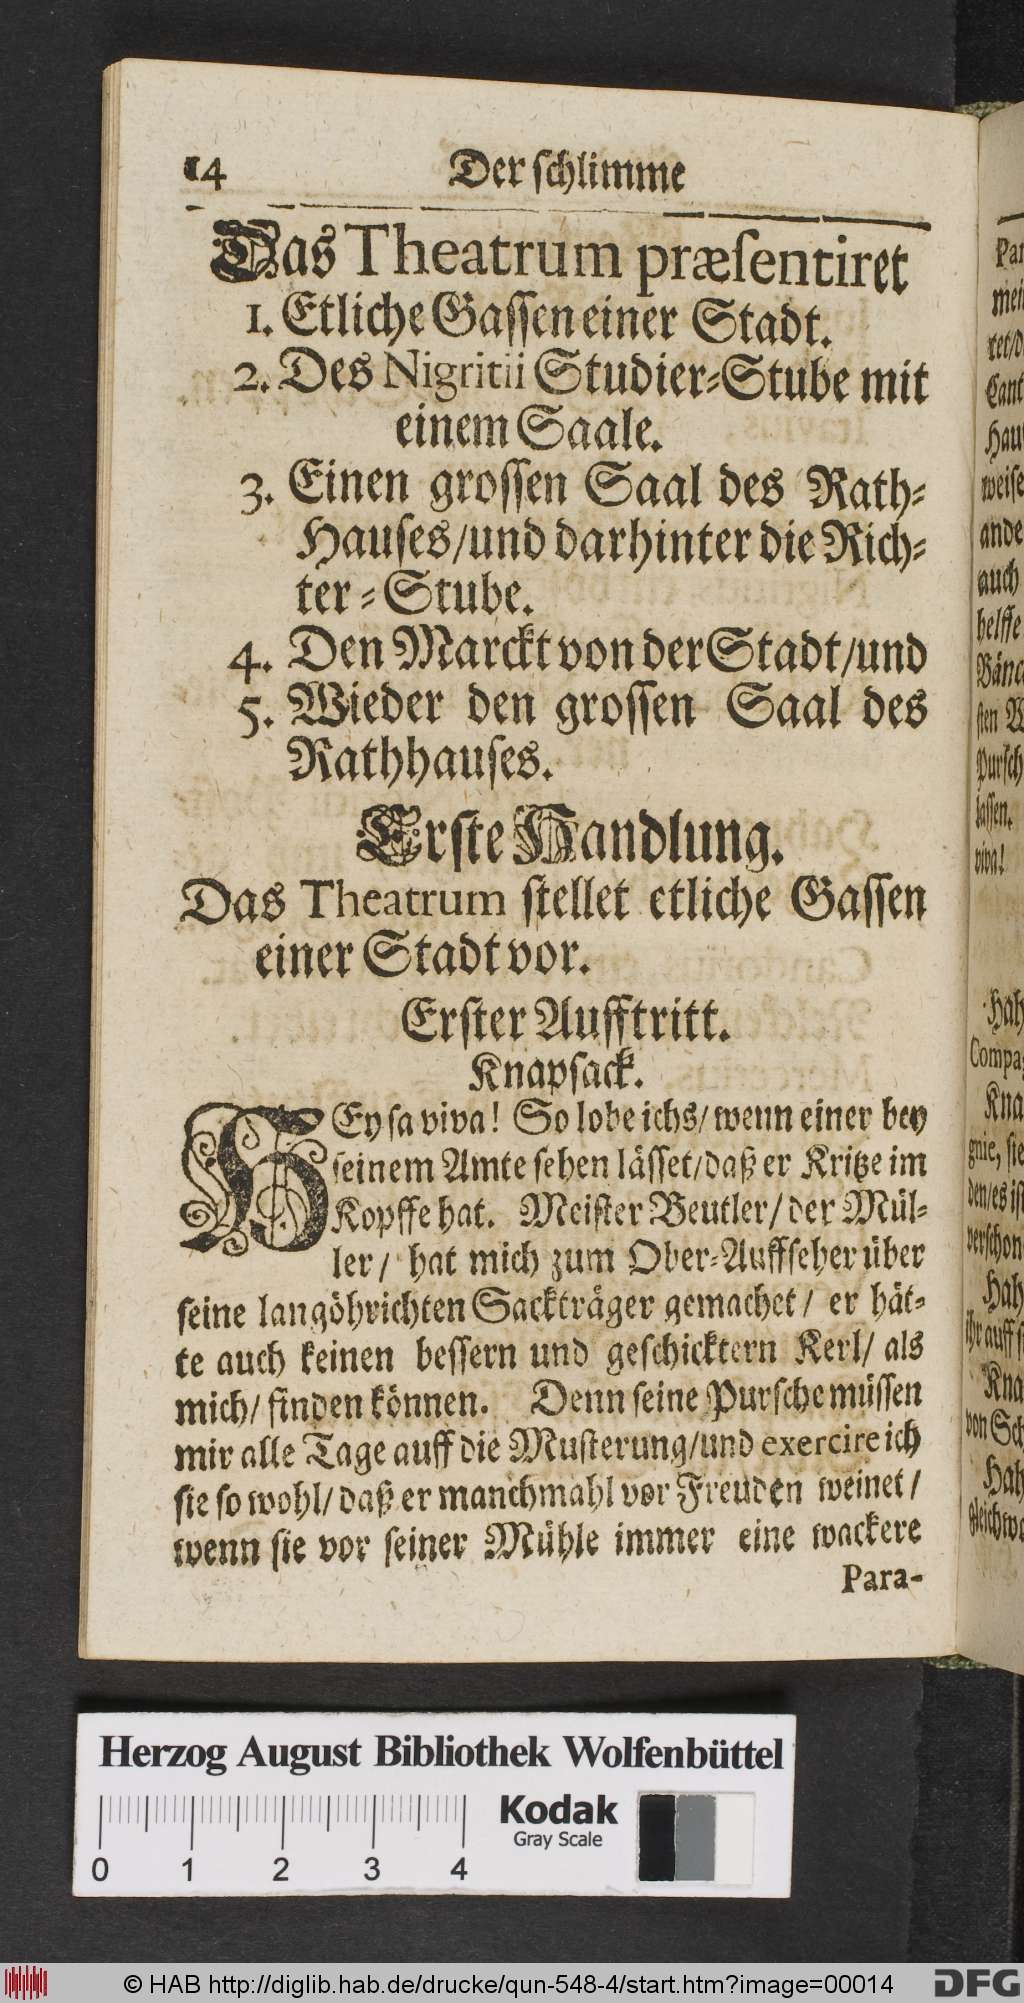 14 Der schlimme
Das Theatrum præsentiret
1. Etliche Gassen einer Stadt.
2. Des Nigritii Studier-Stube mit
einem Saale.
3. Einen grossen Saal des Rath-
Hauses/und darhinter die Rich-
ter-Stube.
4. Den Marckt von der Stadt/und
5. Wieder den grossen Saal des
Rathhauses.
Erste Handlung.
Das Theatrum stellet etliche Gassen
einer Stadt vor.
Erster Aufftritt.
Knapsack.
HEy sa viva! So lobe ichs/wenn einer bey
seinem Amte sehen lässet/daß er Kritze im
Kopffe hat. Meister Beutler/der Mül-
ler/ hat mich zum Ober-Auffseher über
seine langöhrichten Sackträger gemachet/ er hät-
te auch keinen bessern und geschicktern Kerl/ als
mich/ finden können. Denn seine Pursche müssen
mir alle Tage auff die Musterung/und exercire ich
sie so wohl/daß er manchmahl vor Freuden weinet/
wenn sie vor seiner Mühle immer eine wackere
Para-
Cant
weise
ande
auch
helffe
Pursch
lassen.
viva!
Hah
Compag
Kna
gnie, sie
den/es ist
verschon
Hah
ihr auff s
Kna
von Sch
Hah
gleich wo
Herzog August Bibliothek Wolfenbüttel
0 1 2 3 4
Kodak
Gray Scale
© HAB http://diglib.hab.de/drucke/qun-548-4/start.htm?image=00014
DFG